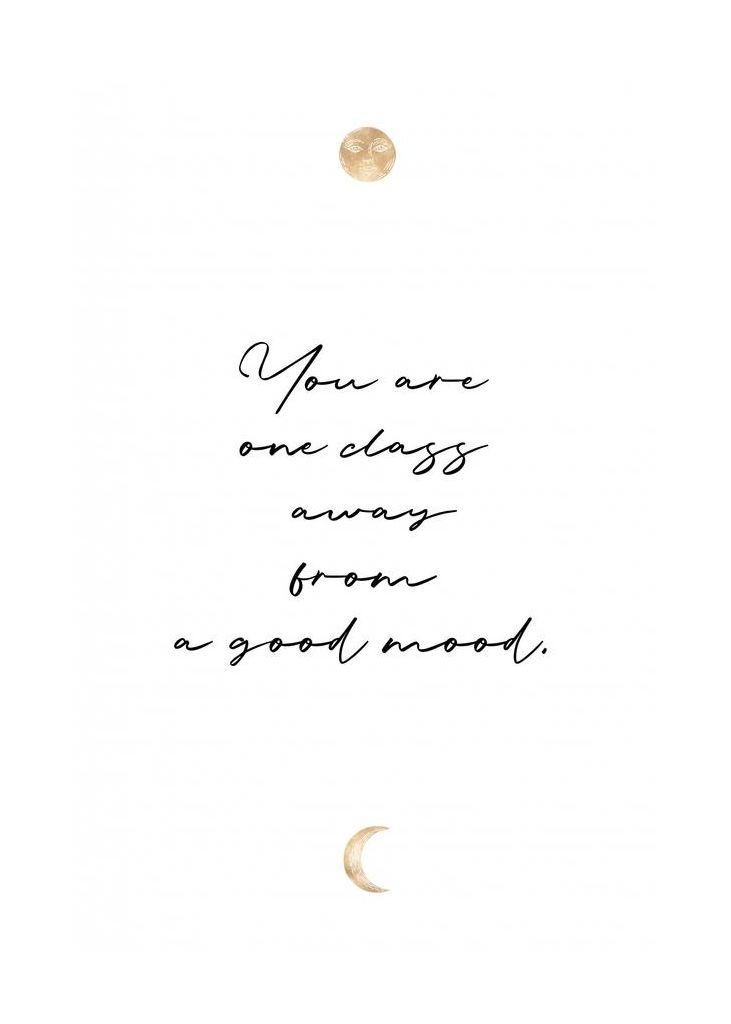 You are
one class
away
from
a good mood.